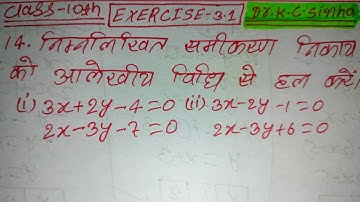 Class-10th EXERCISE-3.1 Dr. K.C. Sinha
14. निम्नलिखित समीकरण निकाय
को आलेखीय विधि से हल करें।
(i) 3x+2y-4=0 (ii) 3x-2y-1=0
2x-3y-7=0 2x-3y+6=0